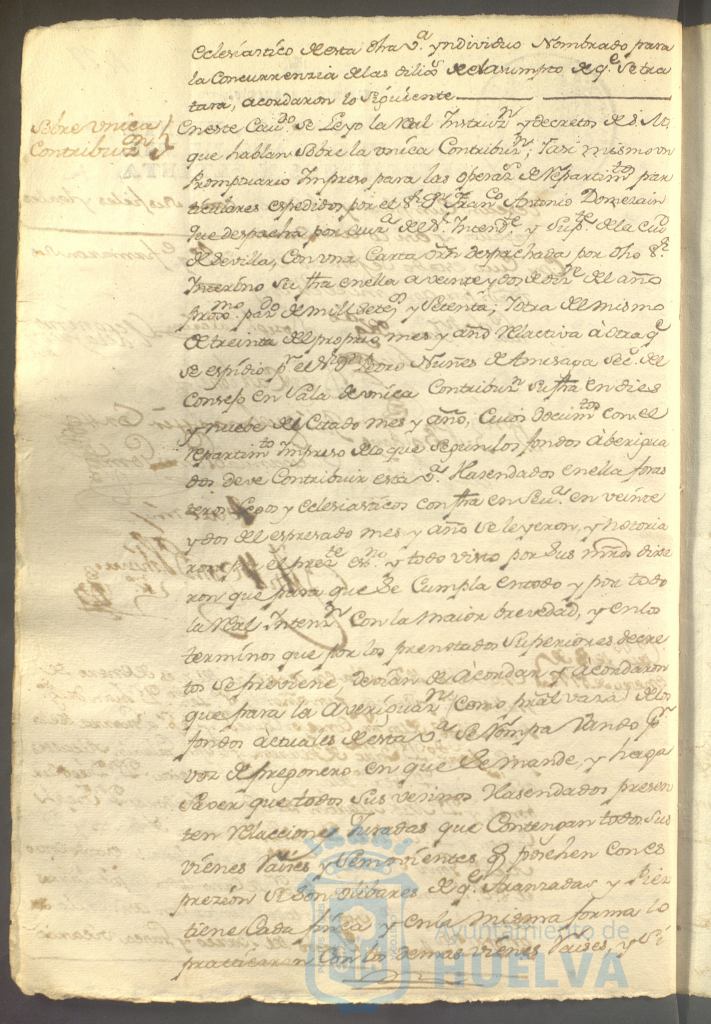 Eclesiastico de esta dha V.ª yndividuo Nombrado para
la Concurrenzia de las dilig.s del asumpto de q.e se tra
tara, acordaron lo siguiente
Sobre Unica
Contribuz.n
En este Cav.do se Leyo la Real Instruz.n y decretos de S. M.
que hablan sobre la vnica Contribuz.n; Y asi mismo un
Promptuario Impreso para las operaz.s de Repartim.tos par
ticulares espedidos por el S.r Fran.co Antonio Domezain
que despacha por aus.a del S.r Intend.te y Sup.te de la Ciu.d
de Sevilla, Con una Carta orn despachada por dho S.r
Interino su fha en ella a veinte y dos de del año
prox.mo pas.do de mill setez.s y setenta; Y otra del mismo
de treinta del proprio mes y año Relactiva a otra q.e
se espidio p.r el Pedro Nuñes de Amezaga Sec. del
Consejo en Sala de vnica Contribuz.n su fha en dies
y nuebe del Citado mes y año, Cuios docum.tos con el
Repartim.to Impreso de lo que segun los fondos aberigua
dos deve Contribuir esta V.ª Hasendados en ella foras
teros Legos y Eclesiasticos con fha en Sev.ª en veinte
y dos del espresado mes y año se leyeron, y notoria
ron por el prez.te es.no y todo visto por sus mrds dixe
ron que para que se Cumpla en todo y por todo
la Real Intenz.n Con la maior brevedad, y en los
terminos que por los prenotados Superiores decre
tos se previene, devian de acordar y acordaron
que para la Averiguaz.n Como pral vaza de los
fondos actuales de esta V.ª se Rompa Vando p.r
voz de pregonero en que se mande, y haga
saver que todos sus vesinos Hasendados presen
ten Relaciones Juradas que Contengan todos sus
vienes Raises y Semovientes q.e posehen con es
prezion si son olibares de q.e Aranzadas y Pies
tiene Cada finca y en la misma forma lo
practicaran Con los demas vienes Raises, y si
Ayuntamiento de
HUELVA